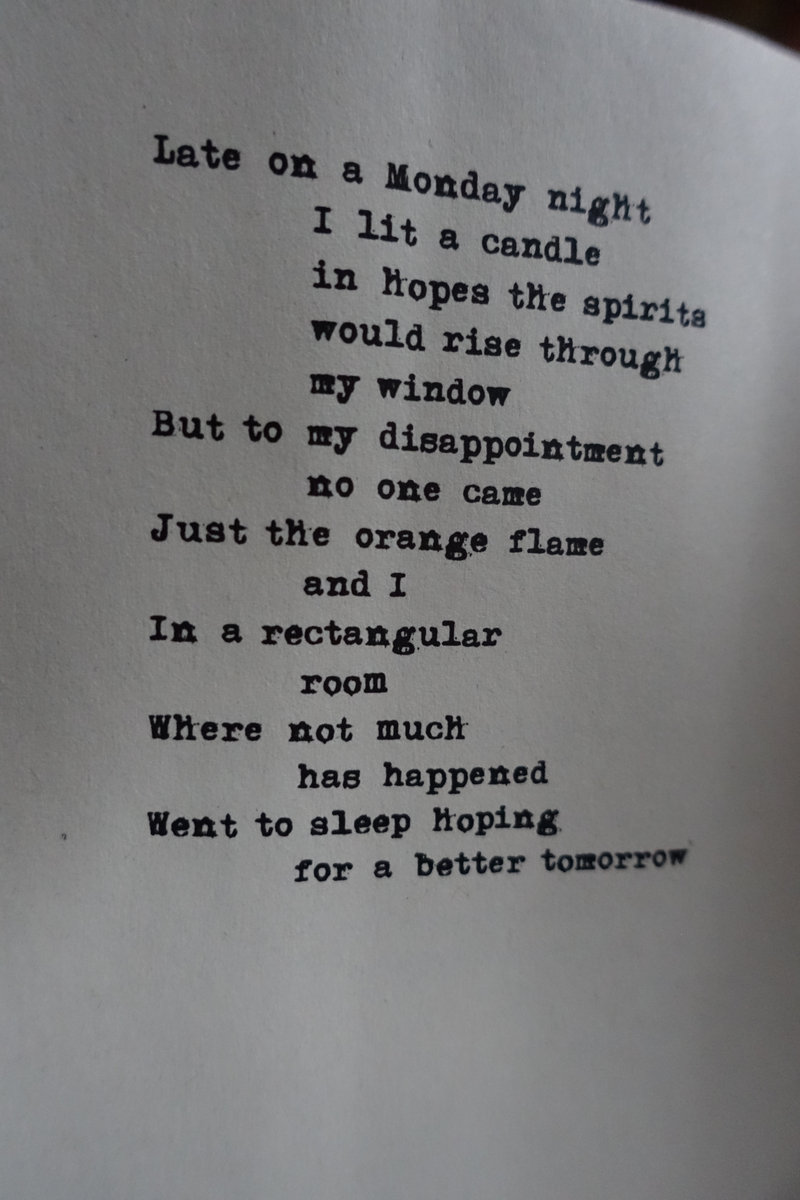 Late on a Monday night
I lit a candle
in hopes the spirits
would rise through
my window
But to my disappointment
no one came
Just the orange flame
and I
In a rectangular
room
Where not much
has happened
Went to sleep hoping
for a better tomorrow